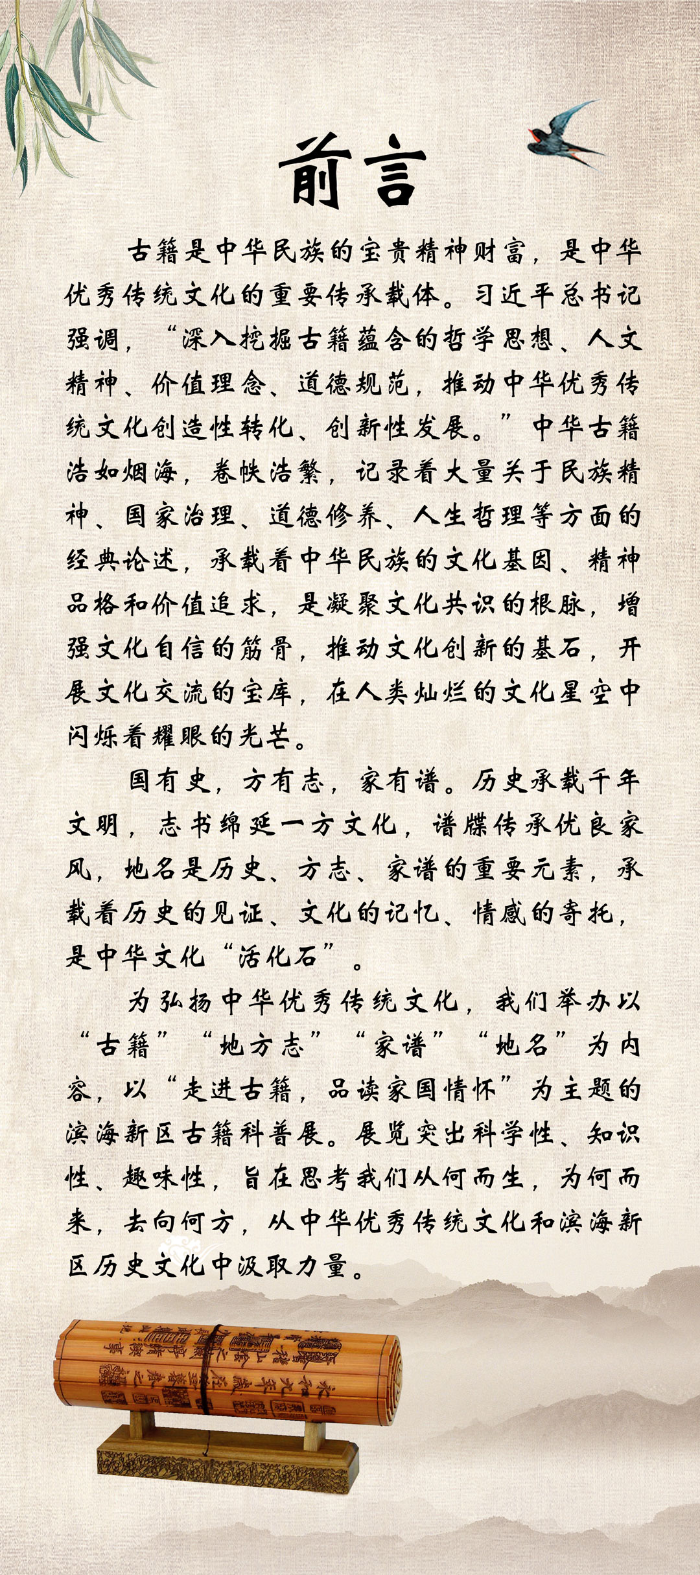 前言
古籍是中华民族的宝贵精神财富，是中华
优秀传统文化的重要传承载体。习近平总书记
强调，“深入挖掘古籍蕴含的哲学思想、人文
精神、价值理念、道德规范，推动中华优秀传
统文化创造性转化、创新性发展。”中华古籍
浩如烟海，卷帙浩繁，记录着大量关于民族精
神、国家治理、道德修养、人生哲理等方面的
经典论述，承载着中华民族的文化基因、精神
品格和价值追求，是凝聚文化共识的根脉，增
强文化自信的筋骨，推动文化创新的基石，开
展文化交流的宝库，在人类灿烂的文化星空中
闪烁着耀眼的光芒。
国有史，方有志，家有谱。历史承载千年
文明，志书绵延一方文化，谱牒传承优良家
风，地名是历史、方志、家谱的重要元素，承
载着历史的见证、文化的记忆、情感的寄托，
是中华文化“活化石”。
为弘扬中华优秀传统文化，我们举办以
“古籍”“地方志”“家谱”“地名”为内
容，以“走进古籍，品读家国情怀”为主题的
滨海新区古籍科普展。展览突出科学性、知识
性、趣味性，旨在思考我们从何而生，为何而
来，去向何方，从中华优秀传统文化和滨海新
区历史文化中汲取力量。